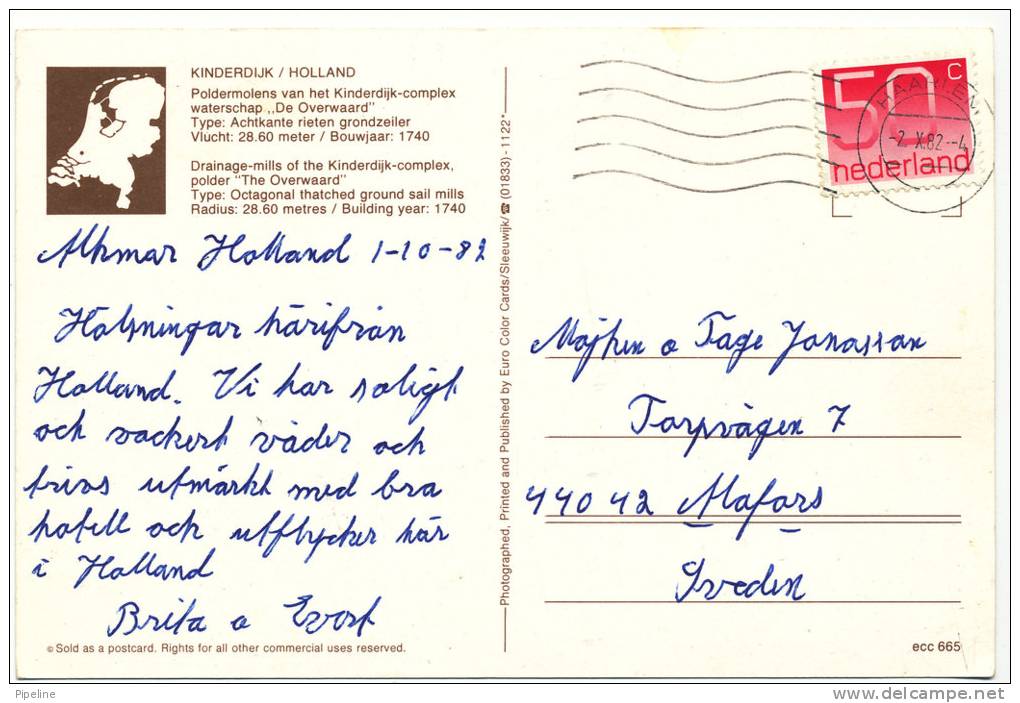 KINDERDIJK / HOLLAND
Poldermolens van het Kinderdijk-complex
waterschap ,,De Overwaard"
Type: Achtkante rieten grondzeiler
Vlucht: 28.60 meter / Bouwjaar: 1740
Drainage-mills of the Kinderdijk-complex,
polder "The Overwaard"
Type: Octagonal thatched ground sail mills
Radius: 28.60 metres / Building year: 1740
Alkmar Holland 1-10-82
Hälsningar härifrån
Holland. Vi har soligt
och vackert väder och
trivs utmärkt med bra
hotell och utflykter här
i Holland
Brita o Evert
© Sold as a postcard. Rights for all other commercial uses reserved.
Photographed, Printed and Published by Euro Color Cards/Sleeuwijk/☎ (01833) - 1122*
50 c
nederland
HAARLEM
-2. X.82.--4
Majken o Tage Jonasson
Torpvägen 7
44042 Alafors
Sveden
ecc 665
Pipeline
delcampe.net